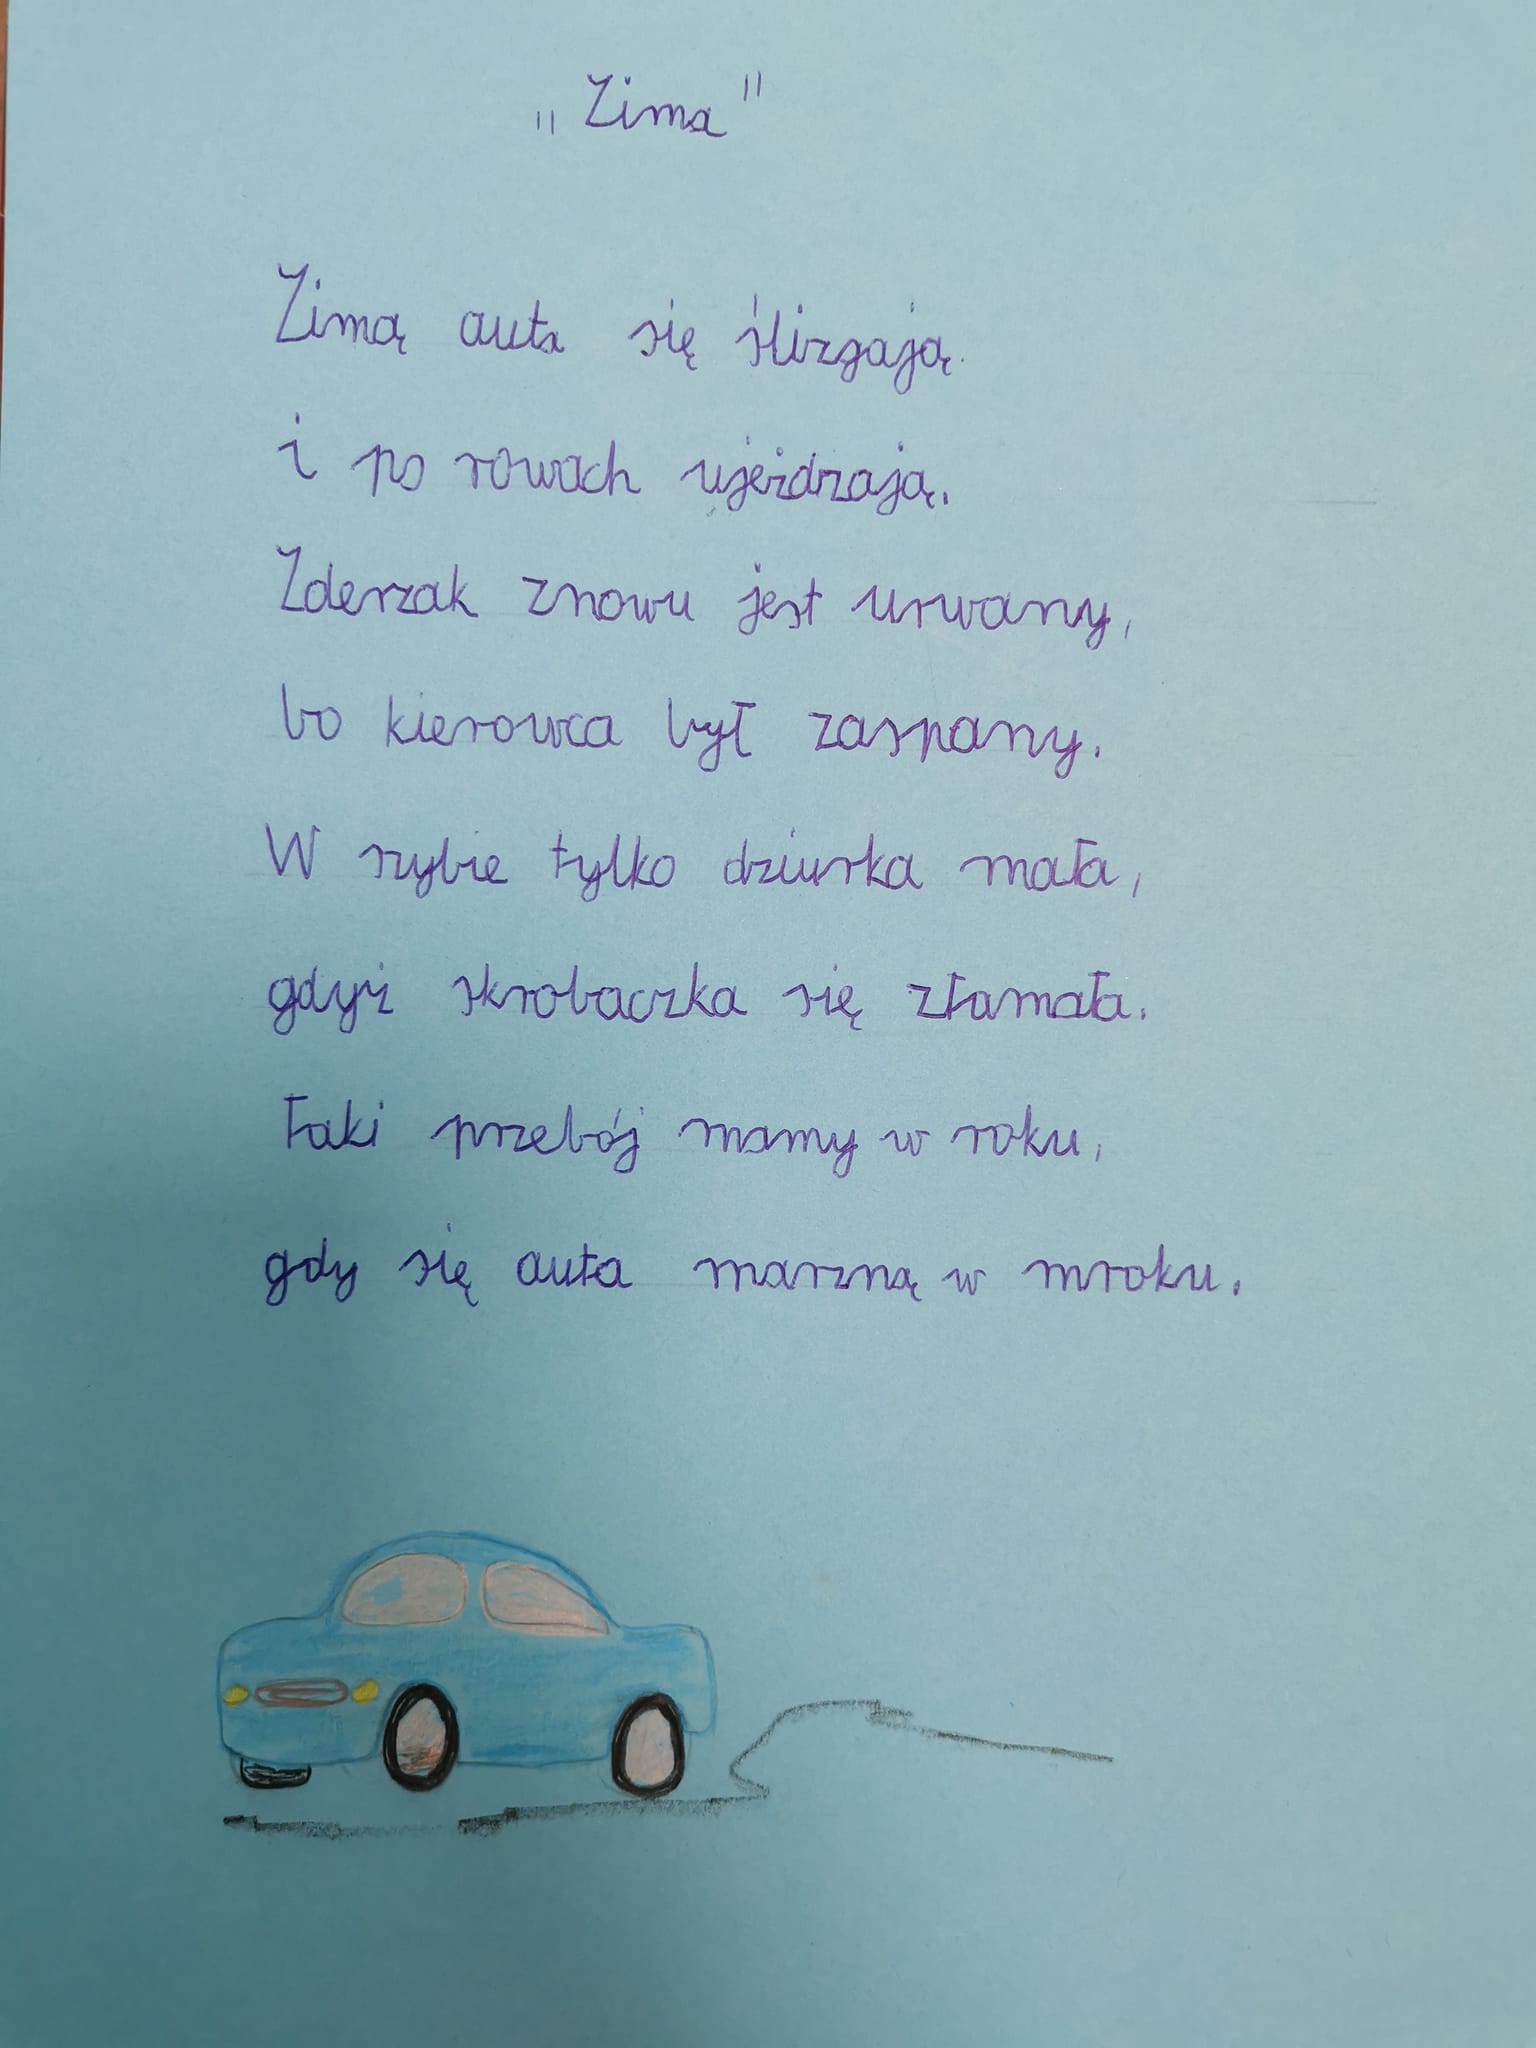 „Zima"
Zimą auta się ślizgają
i po rowach ujeżdzają.
Zderzak znowu jest urwany,
bo kierowca był zaspany.
W szybie tylko dziurka mała,
gdyż skrobaczka się złamała.
Taki przebój mamy w roku,
gdy się auta marzną w mroku.